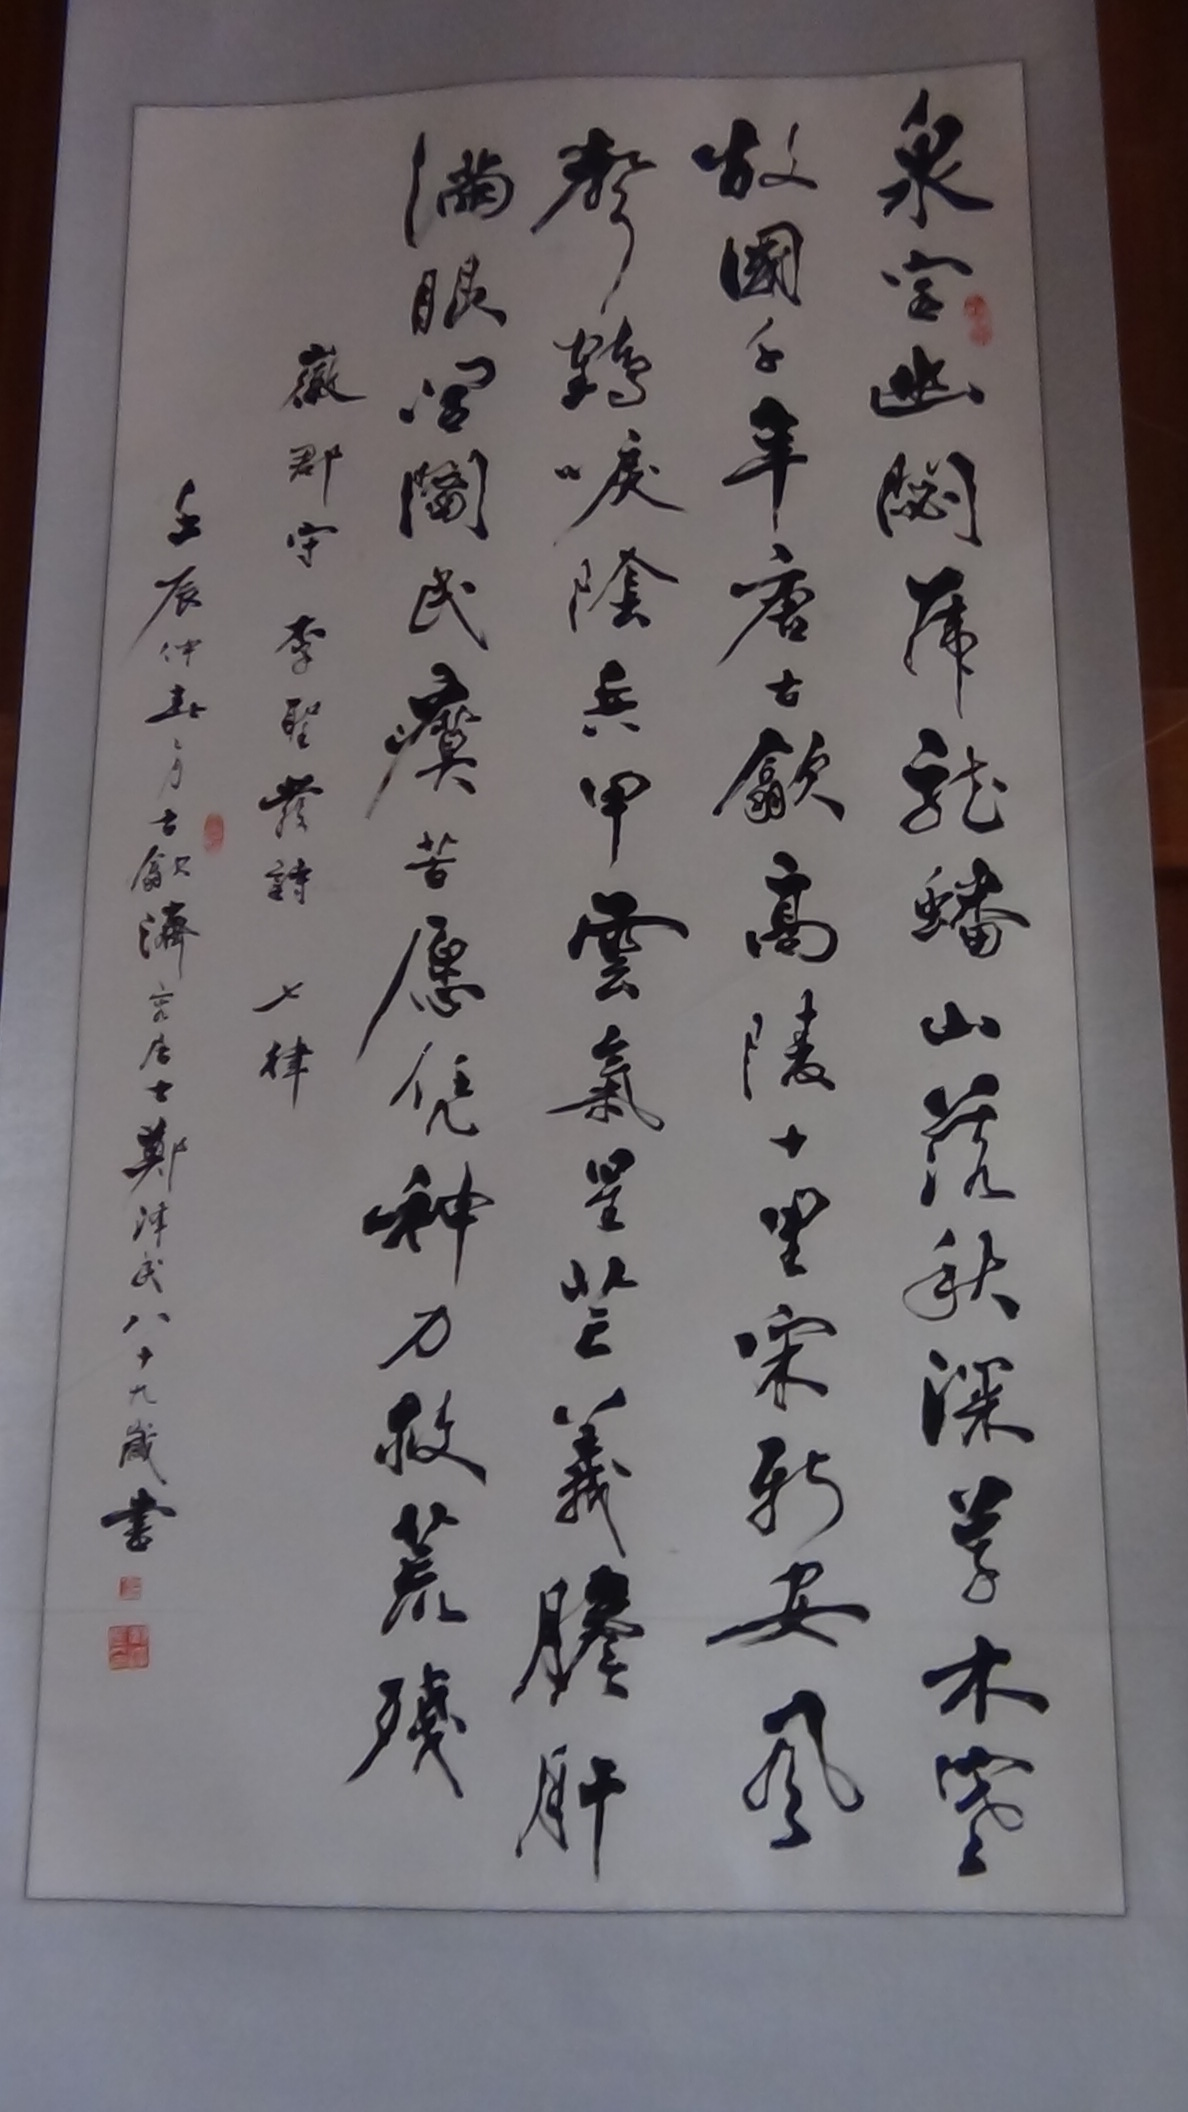 泉宫幽閟虎龍蟠山落秋深草木寒
故國千年唐古歙高陵十里宋新安風
聲鶴唳陰兵甲雲氣星芒義膽肝
滿眼閭閻民瘼苦愿凭神力救荒殘
徽郡守 李聖發詩 七律
壬辰仲春之月古歙濟居士鄭民八十九歲書